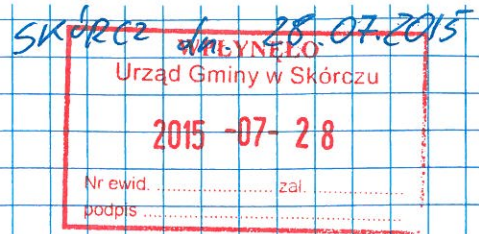 SKÓRCZ dn. 28.07.2015
WPŁYNĘŁO
Urząd Gminy w Skórczu
2015 -07- 28
Nr ewid. .................... zał. ....................
podpis ........................................